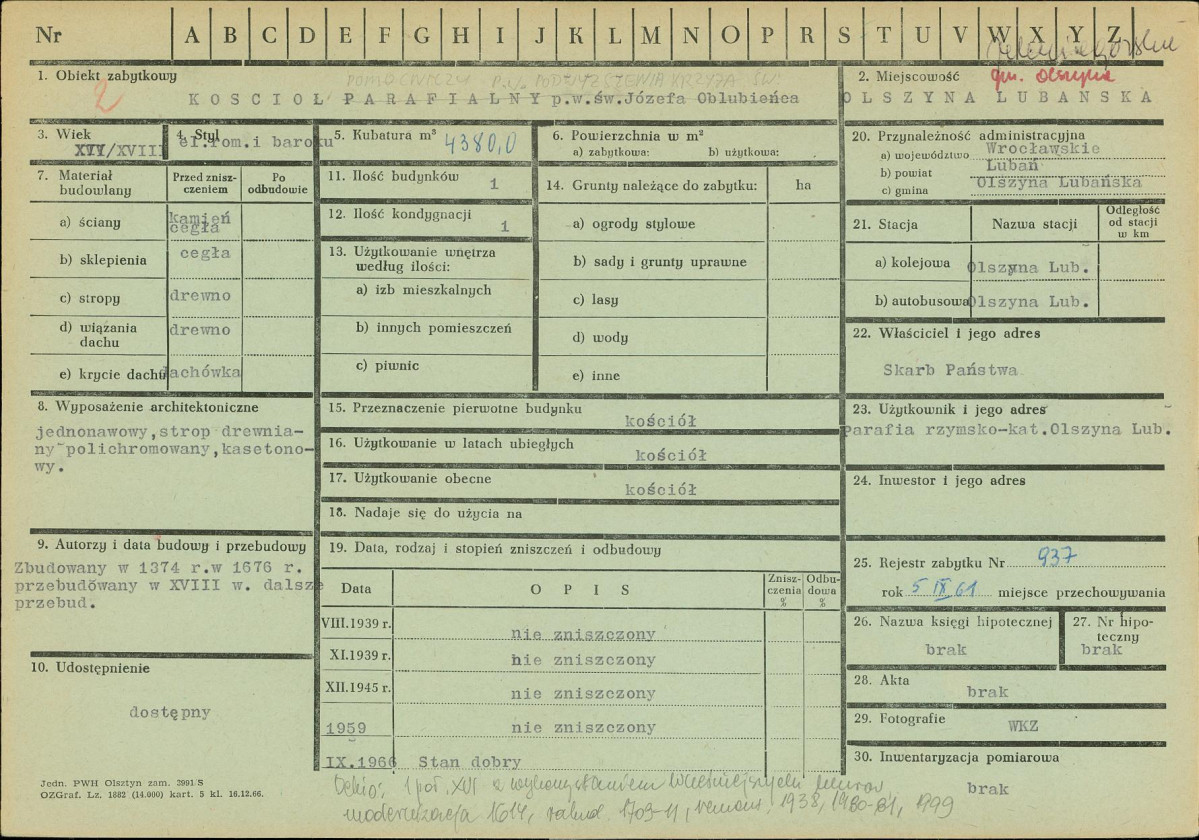 Nr A B C D E F G H I J K L M N O P R S T U V W X Y Z
1. Obiekt zabytkowy
POMOCNICZY P.W. PODWYŻSZENIA KRZYŻA ŚW.
2
KOŚCIÓŁ PARAFIALNY p.w.św.Józefa Oblubieńca
2. Miejscowość gm. Olszyna
OLSZYNA LUBAŃSKA
3. Wiek
XVI/XVIII
4. Styl
el.rom.i baroku
5. Kubatura m³ 4380,0
6. Powierzchnia w m²
a) zabytkowa: b) użytkowa:
7. Materiał budowlany
Przed zniszczeniem
Po odbudowie
a) ściany kamień
cegła
b) sklepienia cegła
c) stropy drewno
d) wiązania dachu drewno
e) krycie dachu dachówka
8. Wyposażenie architektoniczne
jednonawowy,strop drewnia-
ny polichromowany,kasetono-
wy.
9. Autorzy i data budowy i przebudowy
Zbudowany w 1374 r.w 1676 r.
przebudowany w XVIII w. dalsze
przebud.
10. Udostępnienie
dostępny
11. Ilość budynków 1
12. Ilość kondygnacji 1
13. Użytkowanie wnętrza
według ilości:
a) izb mieszkalnych
b) innych pomieszczeń
c) piwnic
14. Grunty należące do zabytku: ha
a) ogrody stylowe
b) sady i grunty uprawne
c) lasy
d) wody
e) inne
15. Przeznaczenie pierwotne budynku
kościół
16. Użytkowanie w latach ubiegłych
kościół
17. Użytkowanie obecne
kościół
18. Nadaje się do użycia na
19. Data, rodzaj i stopień zniszczeń i odbudowy
Data OPIS Zniszczenia % Odbudowa %
VIII.1939 r. nie zniszczony
XI.1939 r. nie zniszczony
XII.1945 r. nie zniszczony
1959 nie zniszczony
IX.1966 Stan dobry
Dehio: 1 poł. XVI z wykorzystaniem wcześniejszych murów
modernizacja 1614, 1703-11, remont. 1938, 1980-81, 1999
20. Przynależność administracyjna
a) województwo Wrocławskie
b) powiat Lubań
c) gmina Olszyna Lubańska
21. Stacja Nazwa stacji Odległość od stacji w km
a) kolejowa Olszyna Lub.
b) autobusowa Olszyna Lub.
22. Właściciel i jego adres
Skarb Państwa
23. Użytkownik i jego adres
parafia rzymsko-kat.Olszyna Lub.
24. Inwestor i jego adres
25. Rejestr zabytku Nr 937
rok 5 IX 61 miejsce przechowywania
26. Nazwa księgi hipotecznej
brak
27. Nr hipo-
teczny
brak
28. Akta
brak
29. Fotografie
WKZ
30. Inwentaryzacja pomiarowa
brak
Jedn. PWH Olsztyn zam. 2991/S
OZGraf. Lz. 1882 (14.000) kart. 5 kl. 16.12.66.